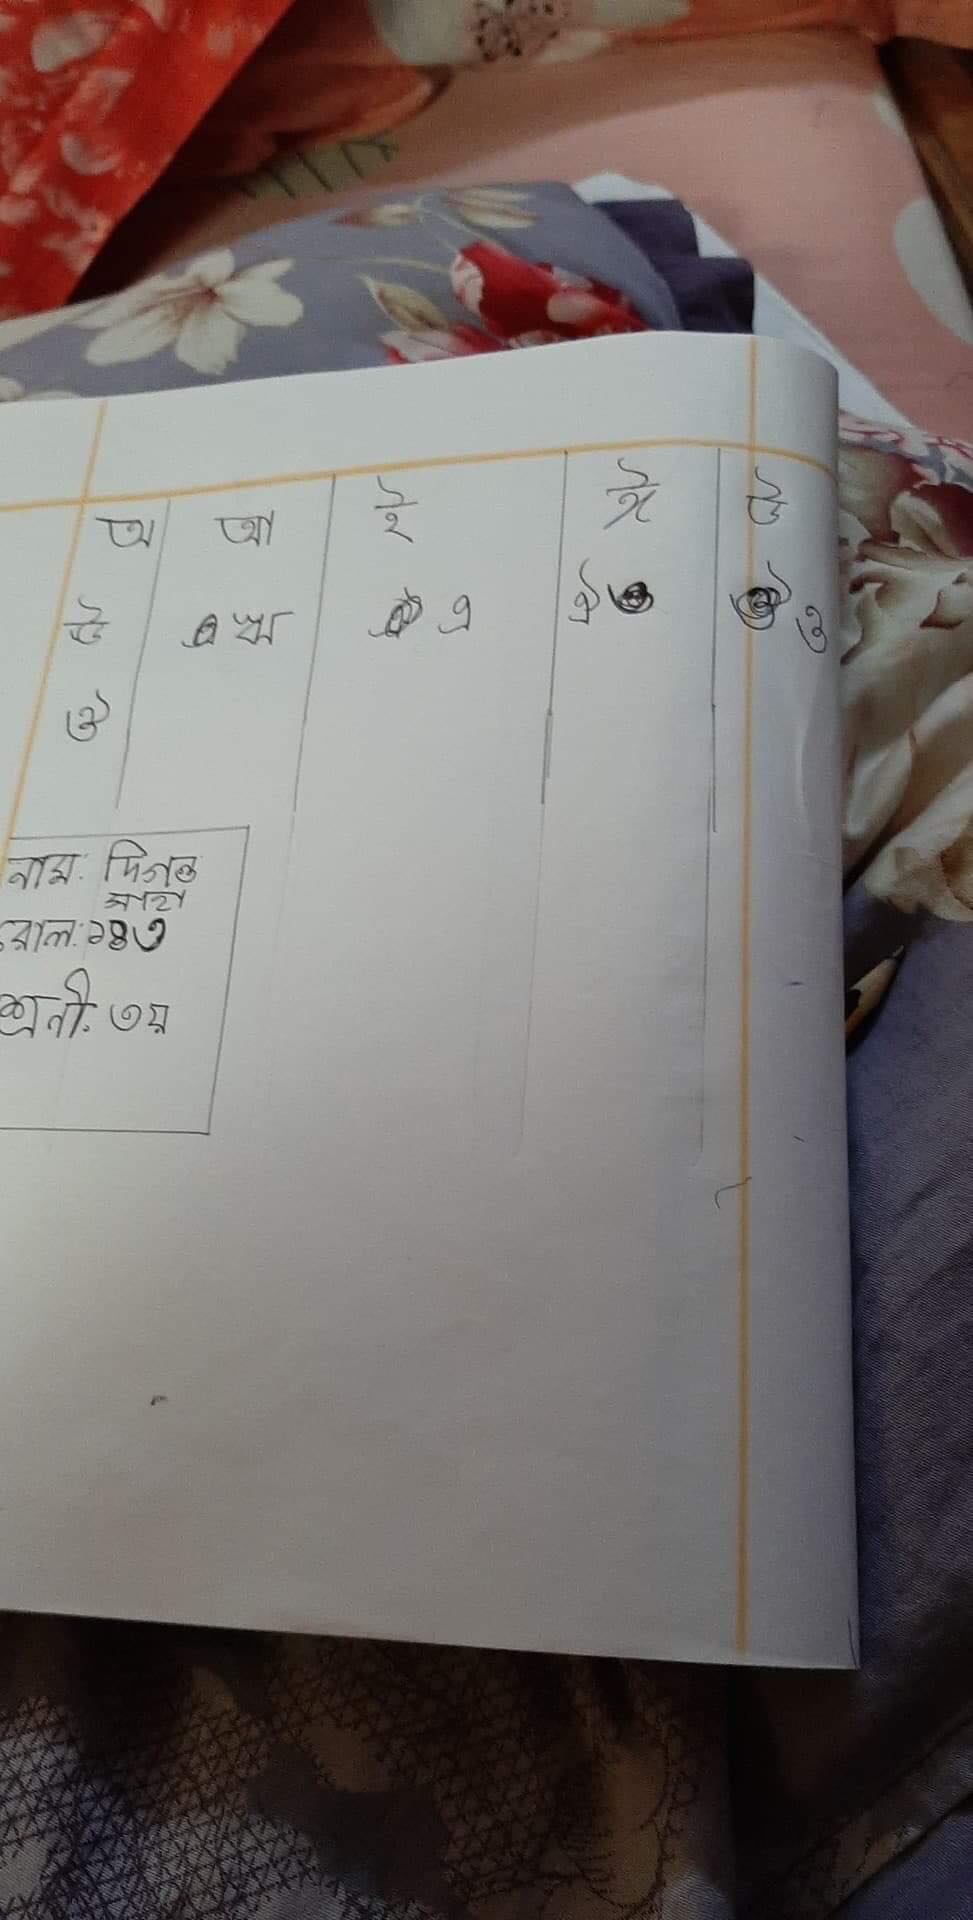 অ আ ই ঈ উ
ঊ ঋ এ ঐ ও
ঔ
নাম: দিগন্ত
সাহা
রোল: ১৪৩
শ্রনী: ৩য়